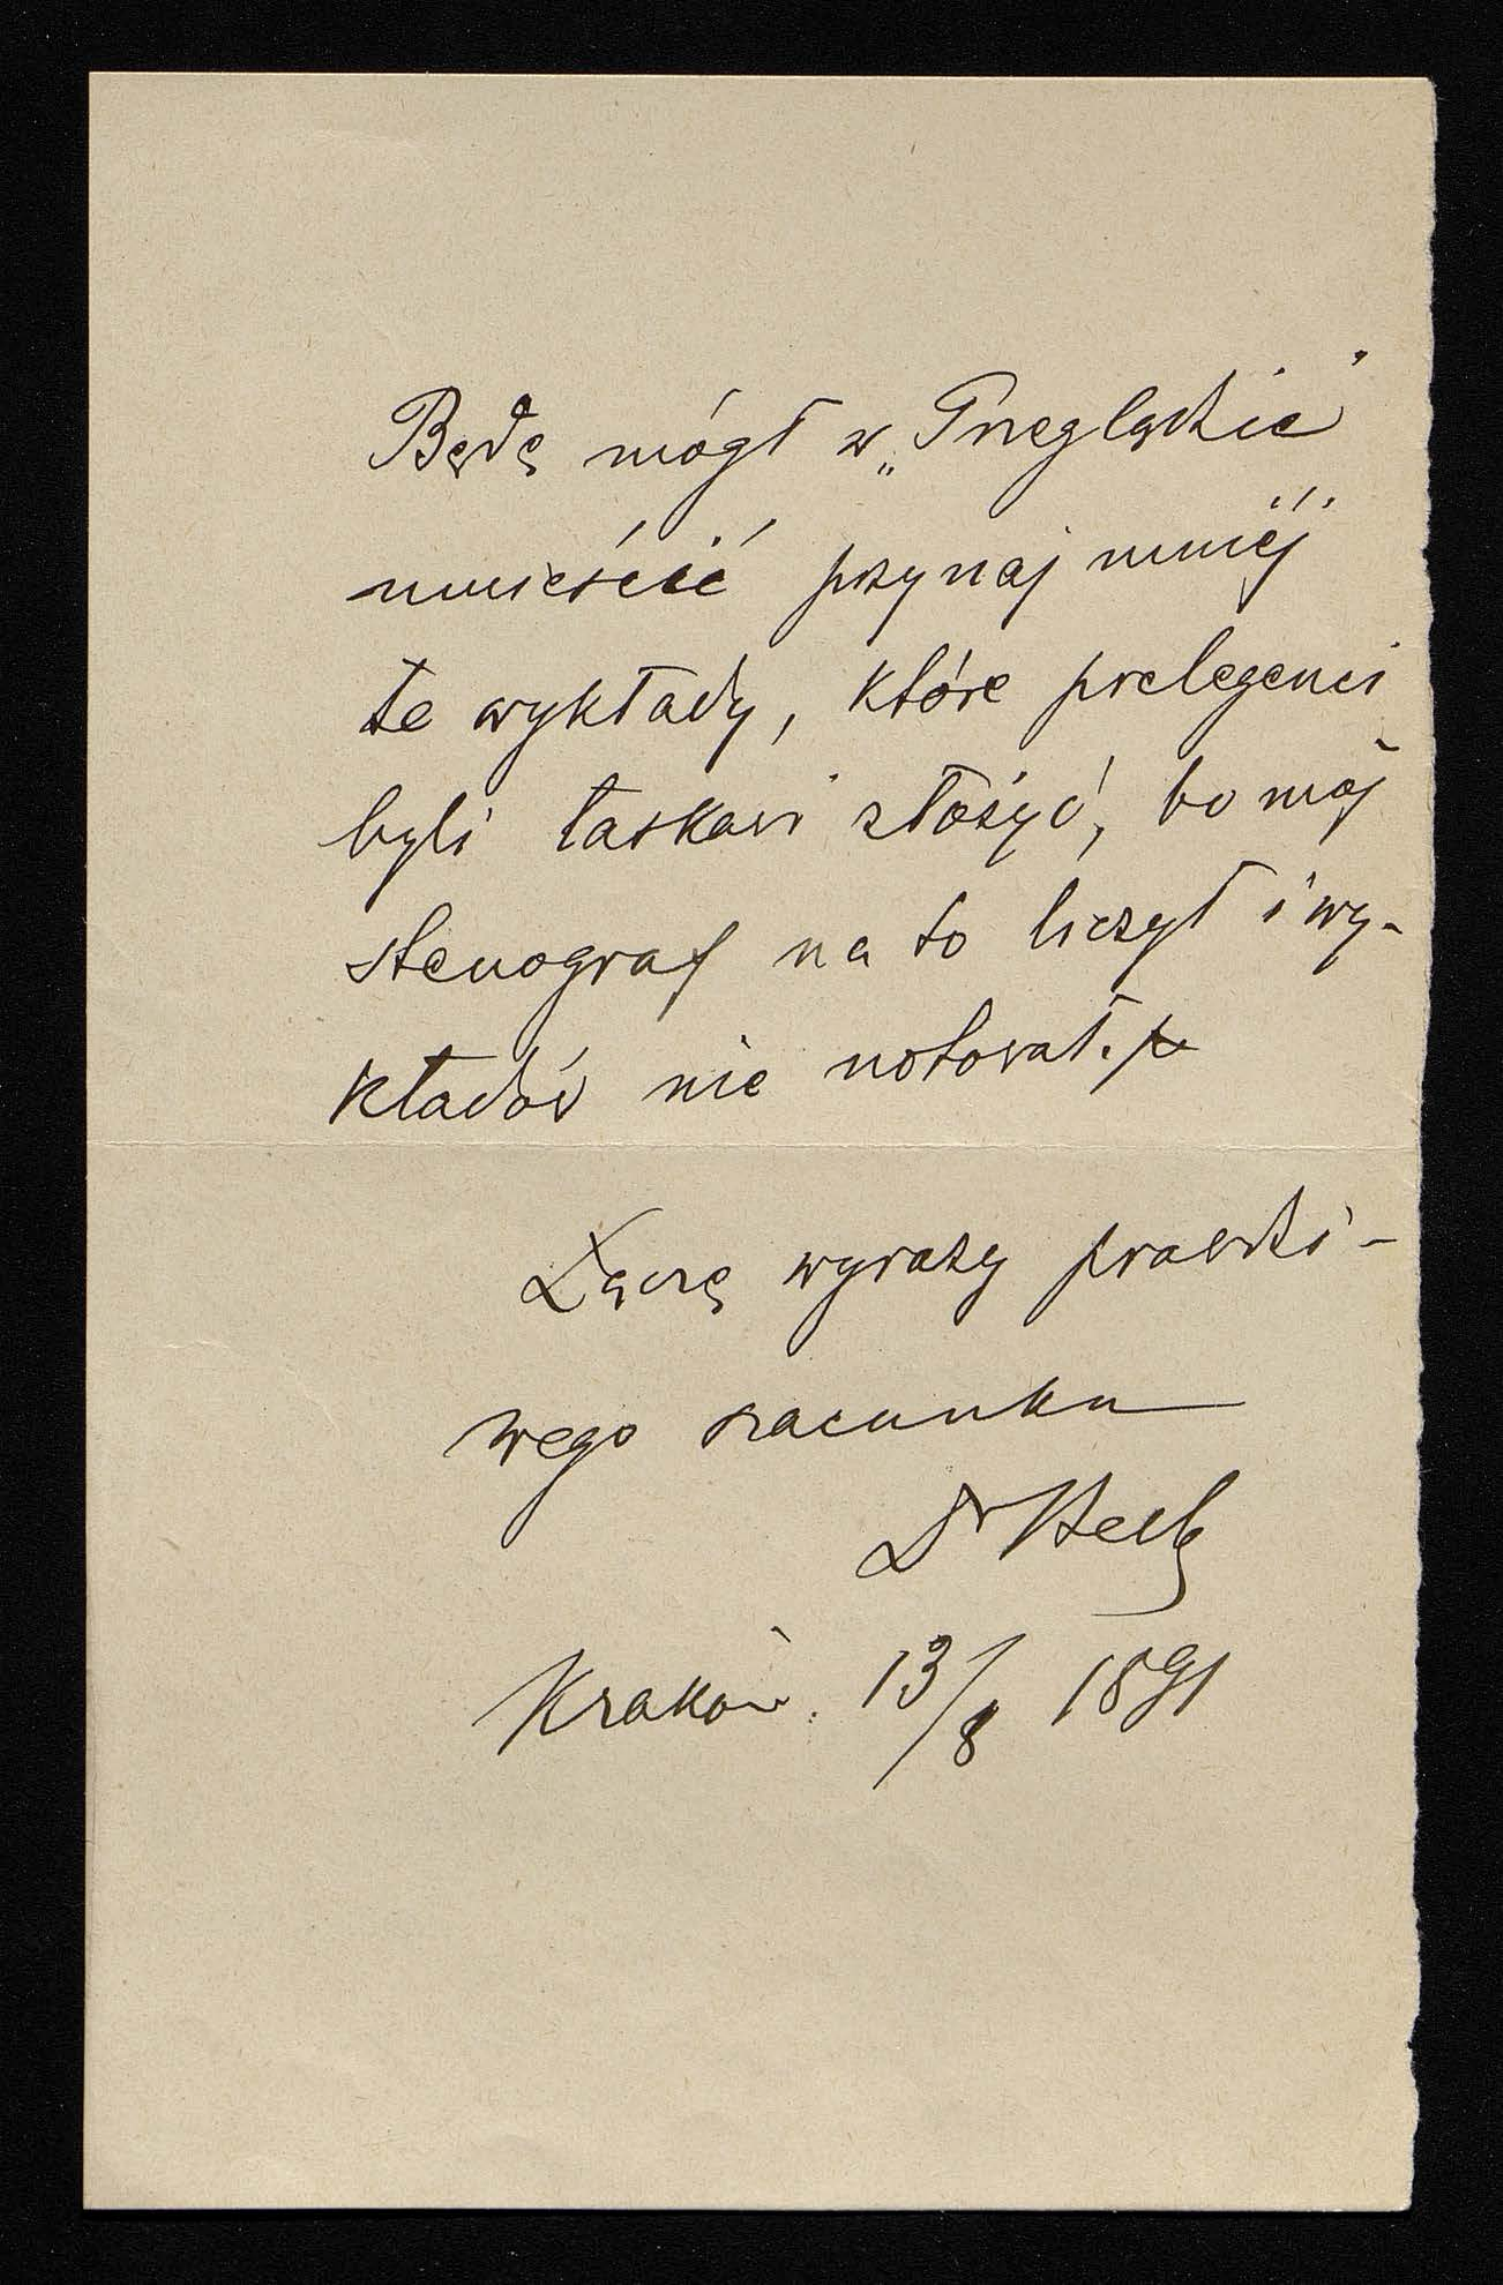 Będę mógł w „Przeglądzie”
umieścić przynajmniéj
te wykłady, które prelegenci
byli łaskawi złożyć, bo mój
stenograf na to liczył i wy-
kładów nie notował.
Łączę wyrazy prawdzi-
wego szacunku
Dr
Kraków. 13/8 1891